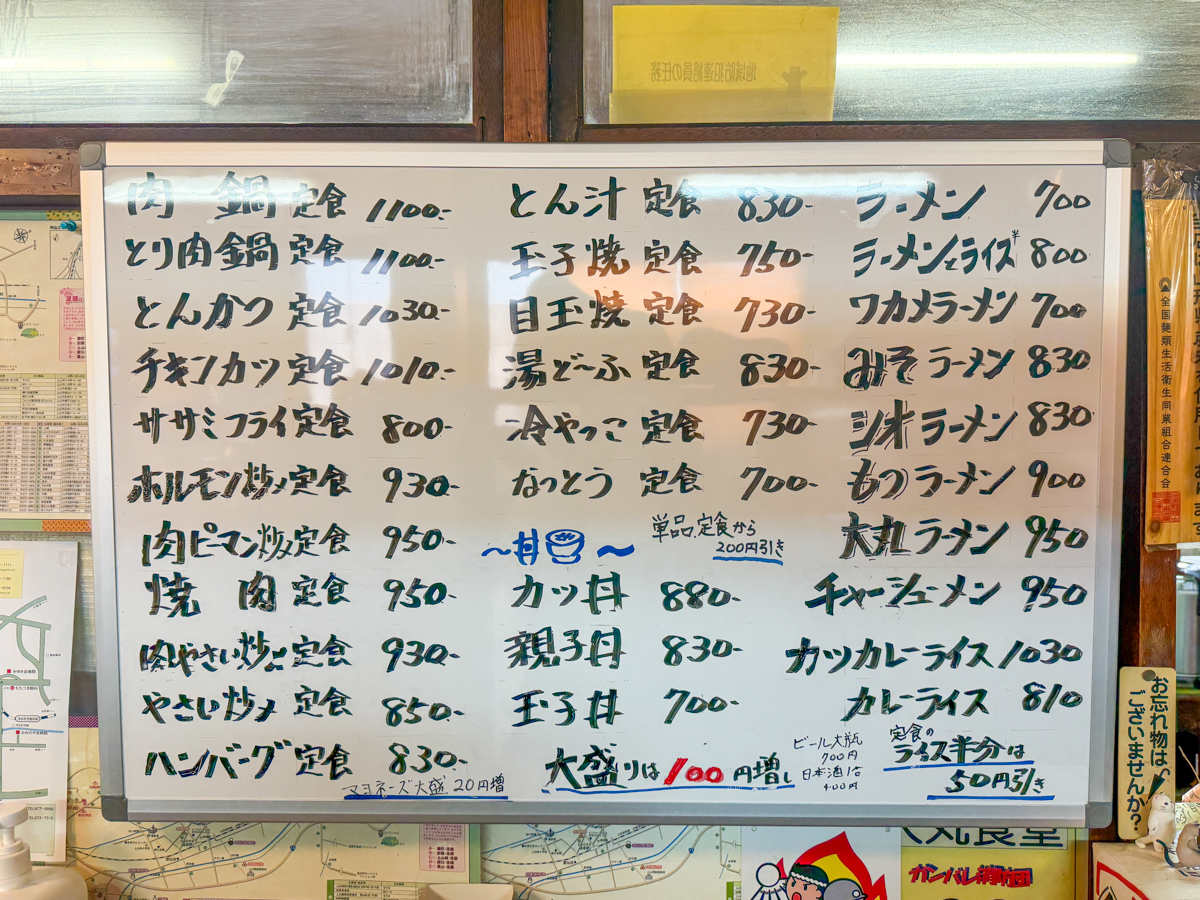 肉鍋定食 1100-
とり肉鍋定食 1100-
とんかつ定食 1030-
チキンカツ定食 1010-
ササミフライ定食 800-
ホルモン炒メ定食 930-
肉ピーマン炒メ定食 950-
焼肉定食 950-
肉やさい炒メ定食 930-
やさい炒メ定食 850-
ハンバーグ定食 830-
マヨネーズ大盛 20円増
とん汁定食 830-
玉子焼定食 750-
目玉焼定食 730-
湯ど〜ふ定食 830-
冷やっこ定食 730-
なっとう定食 700-
単品、定食から
200円引き
〜丼〜
カツ丼 880-
親子丼 830-
玉子丼 700-
大盛りは100円増し
ビール大瓶
700円
日本酒1合
400円
ラーメン 700
ラーメンとライス半 800
ワカメラーメン 700
みそラーメン 830
シオラーメン 830
もつラーメン 900
大丸ラーメン 950
チャーシューメン 950
カツカレーライス 1030
カレーライス 810
定食の
ライス半分は
50円引き
地域防犯連絡員の任務
全国麺類生活衛生同業組合連合会
お忘れ物は
ございませんか?
大丸食堂
ガンバレ